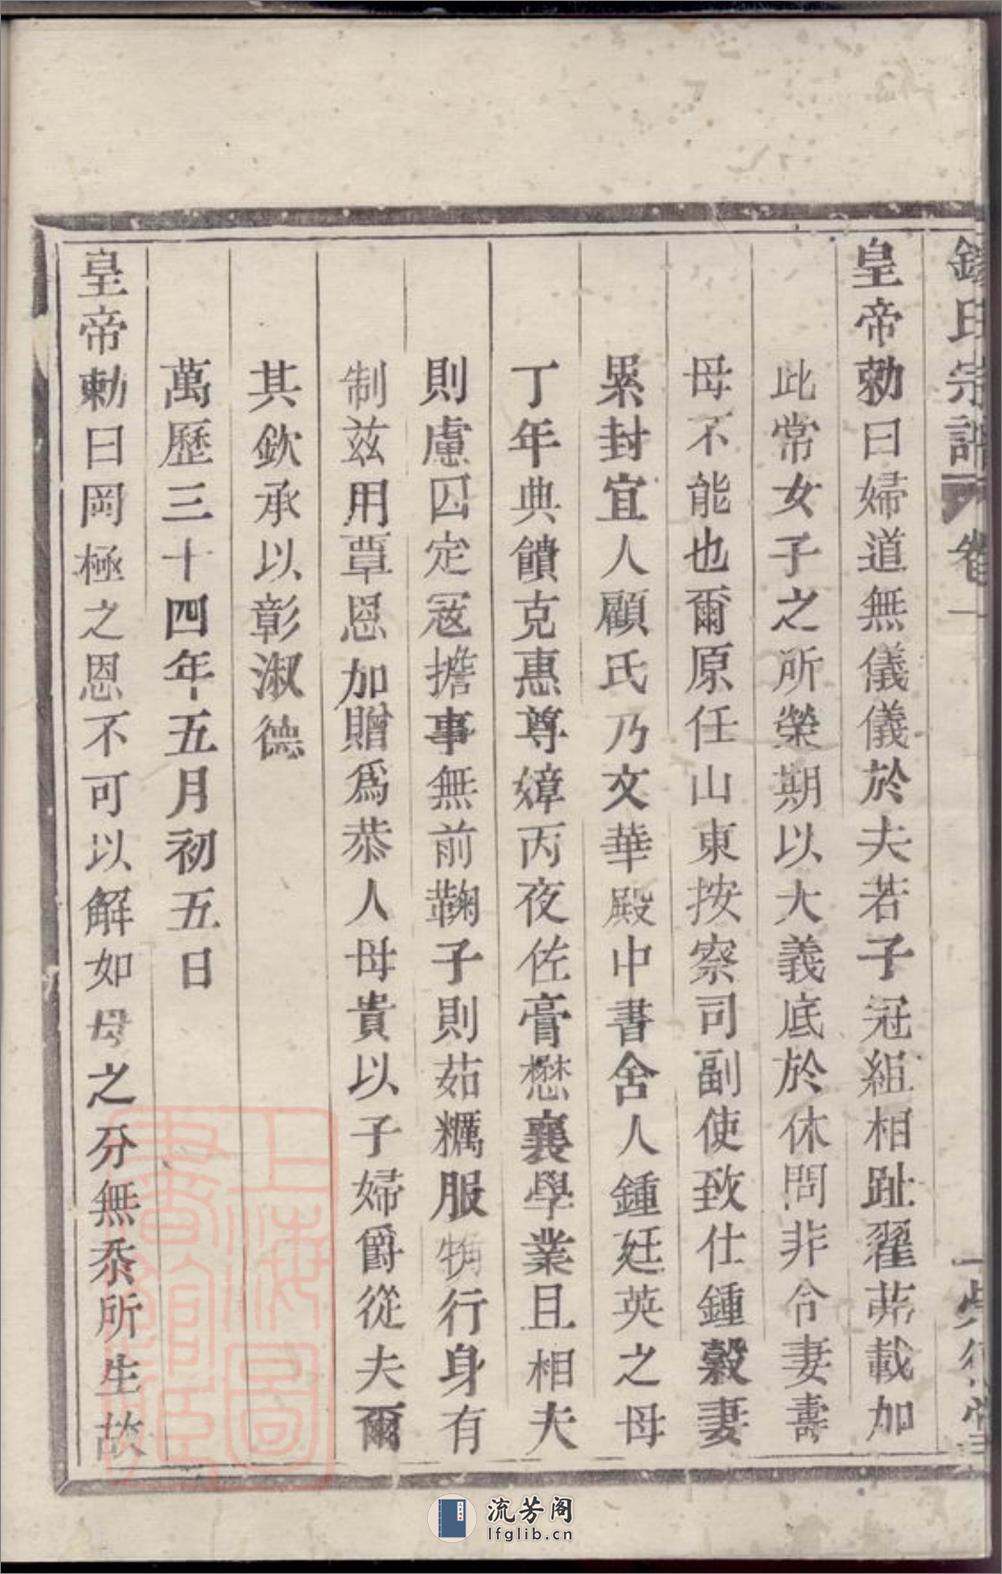 氏宗譜 卷一
皇帝勅曰婦道無儀儀於夫若子冠組相趾翟茀載加
此常女子之所榮期以大義底於休問非令妻壽
母不能也爾原任山東按察司副使致仕鍾穀妻
累封宜人顧氏乃文華殿中書舍人鍾廷英之母
丁年典饋克惠尊嫜丙夜佐膏懋襄學業且相夫
則慮囚定寇擔事無前鞠子則茹糲服物行身有
制兹用覃恩加贈為恭人母貴以子婦爵從夫爾
其欽承以彰淑德
萬歷三十四年五月初五日
皇帝勅曰岡極之恩不可以解如母之分無忝所生故
上海圖書館藏
流芳阁
lfglib.cn